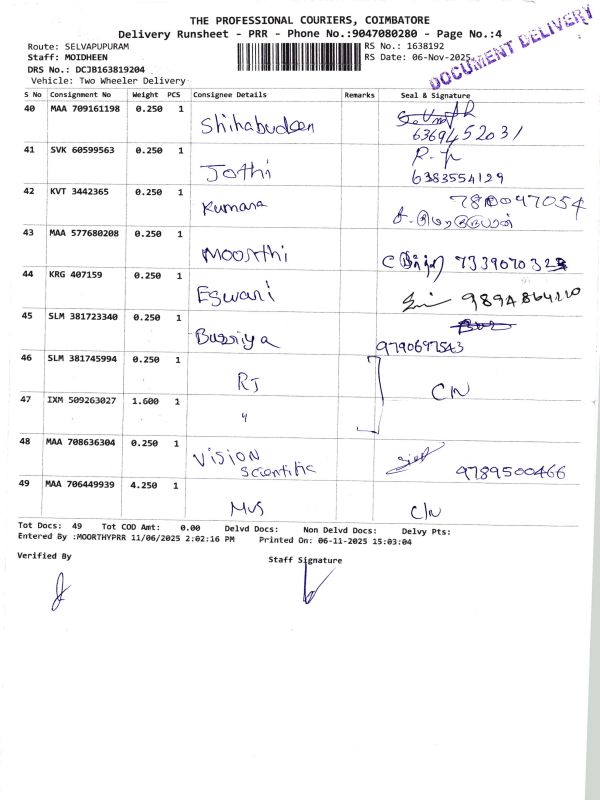 THE PROFESSIONAL COURIERS, COIMBATORE
Delivery Runsheet - PRR - Phone No.:9047080280 - Page No.:4
Route: SELVAPUPURAM RS No.: 1638192
Staff: MOIDHEEN RS Date: 06-Nov-2025
DRS No.: DCJB163819204
Vehicle: Two Wheeler Delivery
DOCUMENT DELIVERY
S No Consignment No Weight PCS Consignee Details Remarks Seal & Signature
40 MAA 709161198 0.250 1 Shihabudeen
6369452031
41 SVK 60599563 0.250 1 Jothi
6383554129
42 KVT 3442365 0.250 1 Kumara
43 MAA 577680208 0.250 1 Moorthi
44 KRG 407159 0.250 1 Eswari
45 SLM 381723340 0.250 1 Busriya
9790697543
46 SLM 381745994 0.250 1 RJ C/N
47 IXM 509263027 1.600 1 "
48 MAA 708636304 0.250 1 Vision
Scientific 9789500466
49 MAA 706449939 4.250 1 Mvs C/N
Tot Docs: 49 Tot COD Amt: 0.00 Delvd Docs: Non Delvd Docs: Delvy Pts:
Entered By :MOORTHYPRR 11/06/2025 2:02:16 PM Printed On: 06-11-2025 15:03:04
Verified By Staff Signature